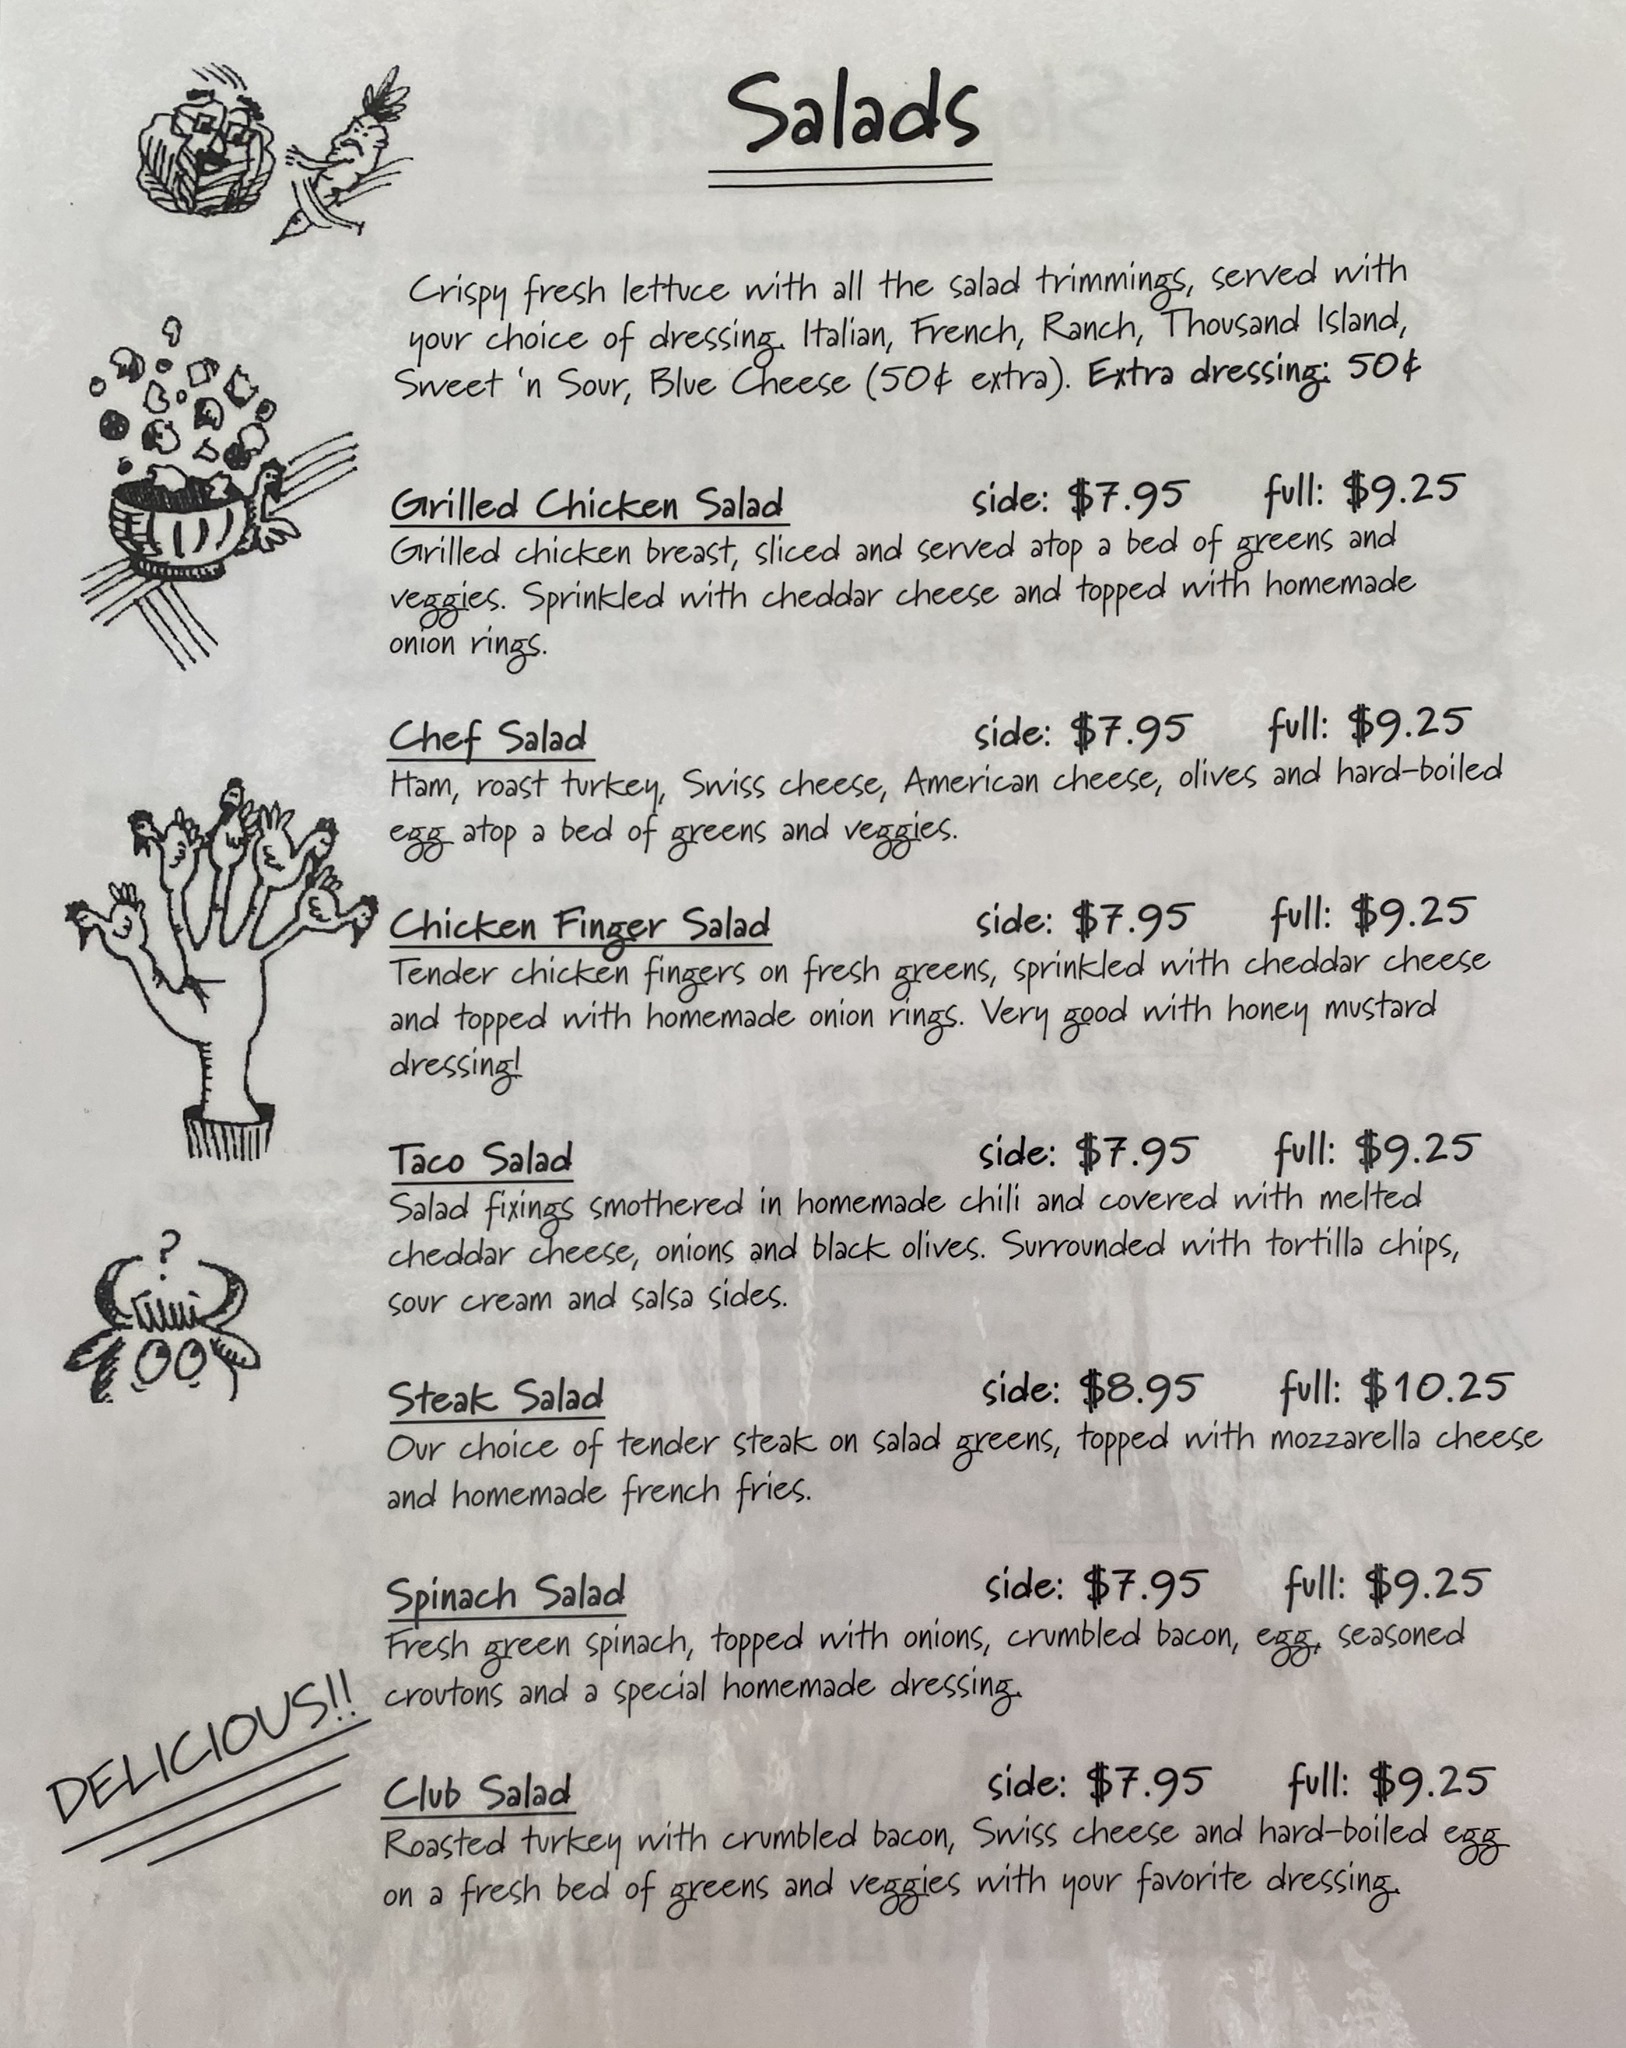 Salads
Crispy fresh lettuce with all the salad trimmings, served with
your choice of dressing. Italian, French, Ranch, Thousand Island,
Sweet 'n Sour, Blue Cheese (50¢ extra). Extra dressing: 50¢
Grilled Chicken Salad side: $7.95 full: $9.25
Grilled chicken breast, sliced and served atop a bed of greens and
veggies. Sprinkled with cheddar cheese and topped with homemade
onion rings.
Chef Salad side: $7.95 full: $9.25
Ham, roast turkey, Swiss cheese, American cheese, olives and hard-boiled
egg atop a bed of greens and veggies.
Chicken Finger Salad side: $7.95 full: $9.25
Tender chicken fingers on fresh greens, sprinkled with cheddar cheese
and topped with homemade onion rings. Very good with honey mustard
dressing!
Taco Salad side: $7.95 full: $9.25
Salad fixings smothered in homemade chili and covered with melted
cheddar cheese, onions and black olives. Surrounded with tortilla chips,
sour cream and salsa sides.
?
Steak Salad side: $8.95 full: $10.25
Our choice of tender steak on salad greens, topped with mozzarella cheese
and homemade french fries.
Spinach Salad side: $7.95 full: $9.25
Fresh green spinach, topped with onions, crumbled bacon, egg, seasoned
croutons and a special homemade dressing.
DELICIOUS!!
Club Salad side: $7.95 full: $9.25
Roasted turkey with crumbled bacon, Swiss cheese and hard-boiled egg
on a fresh bed of greens and veggies with your favorite dressing.